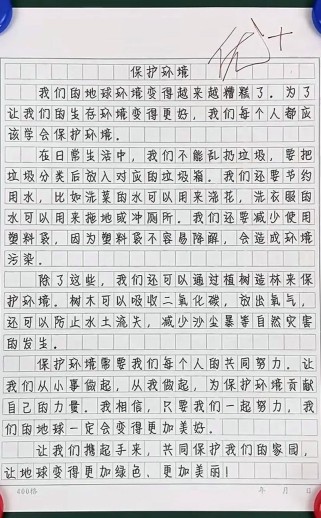 优+
保护环境
我们的地球环境变得越来越糟糕了。为了
让我们的生存环境变得更好，我们每个人都应
该学会保护环境。
在日常生活中，我们不能乱扔垃圾，要把
垃圾分类后放入对应的垃圾箱。我们还要节约
用水，比如洗菜的水可以用来浇花，洗衣服的
水可以用来拖地或冲厕所。我们还要减少使用
塑料袋，因为塑料袋不容易降解，会造成环境
污染。
除了这些，我们还可以通过植树造林来保
护环境。树木可以吸收二氧化碳，放出氧气，
还可以防止水土流失，减少沙尘暴等自然灾害
的发生。
保护环境需要我们每个人的共同努力。让
我们从小事做起，从我做起，为保护环境贡献
自己的力量。我相信，只要我们一起努力，我
们的地球一定会变得更加美好。
让我们携起手来，共同保护我们的家园，
让地球变得更加绿色、更加美丽！
400格
年 月 日